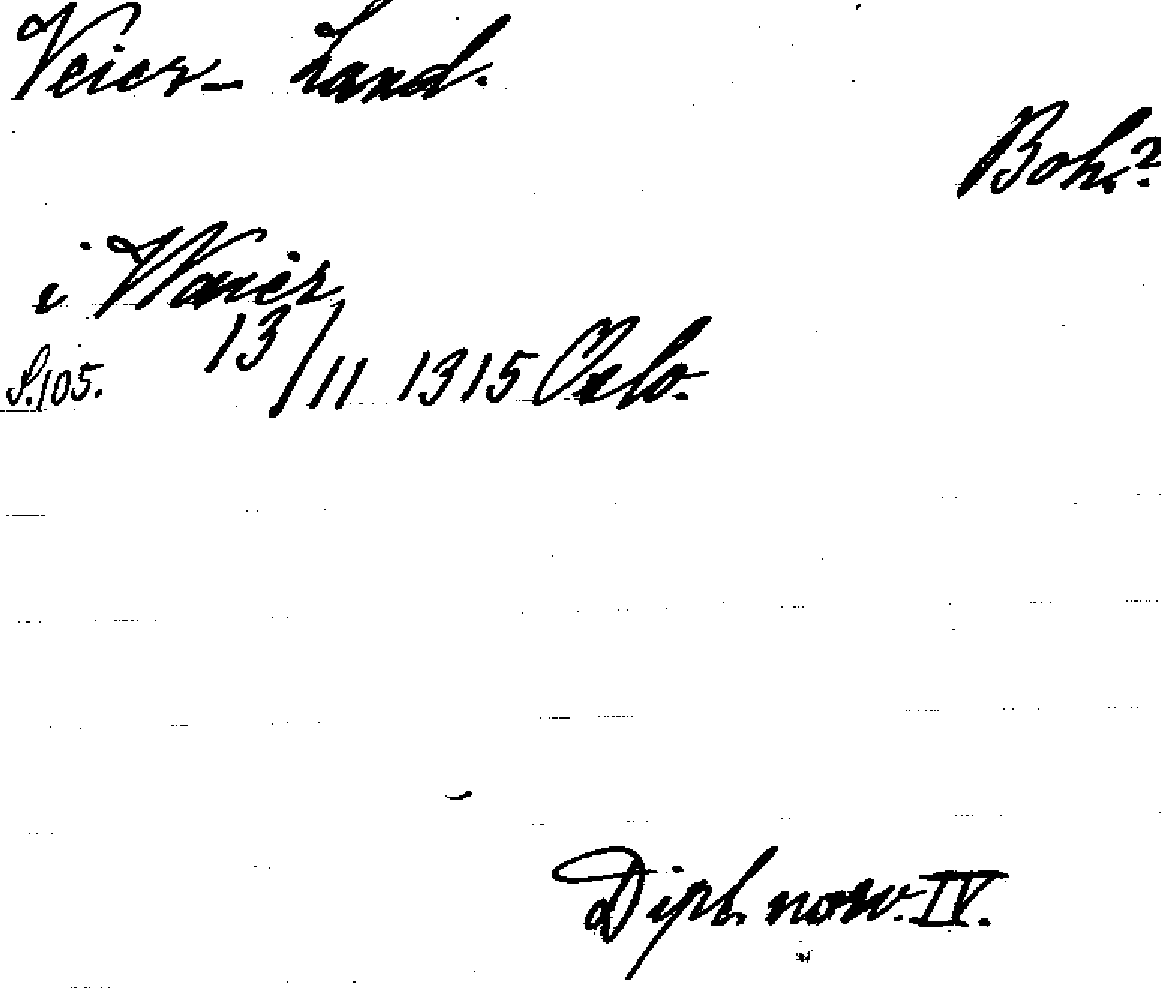 Veier- Land.
Boh.?
i Waiér
S.105. 13/11 1315 Oslo.
Dipl. norv. IV.